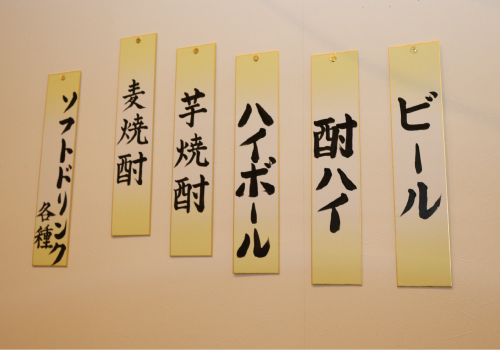 ビール
酎ハイ
ハイボール
芋焼酎
麦焼酎
ソフトドリンク
各種